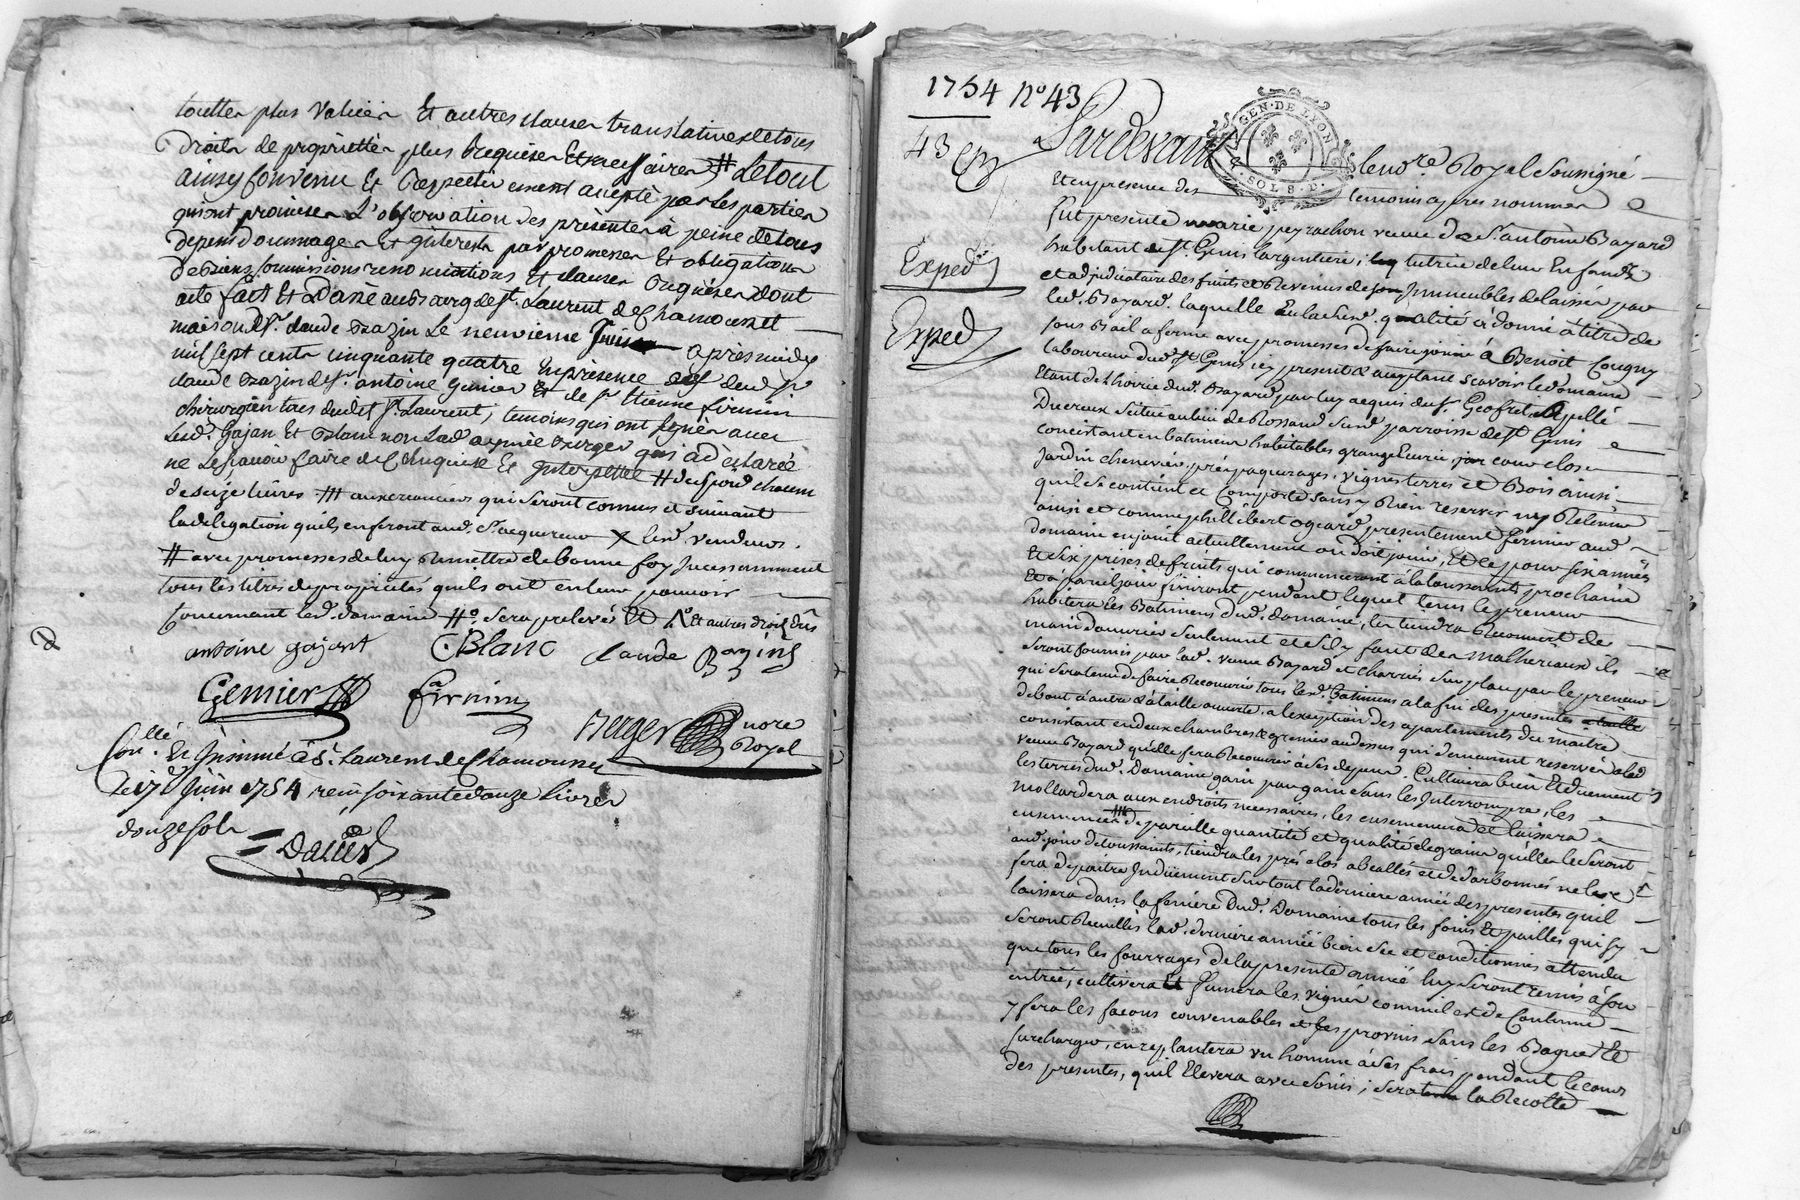 touttes plus values Et autres clauses translatives de tous
droits de proprietté plus Requises Et necessaires # Le tout
ainsy Convenu Et Respectivement accepté par Les parties
qui ont promises L'observation des présentes à peine de tous
depens dommages Et Interests par promesses Et obligations
de biens soumissions renonciations Et clauses Requises dont
acte fait Et Passé au Bourg de St. Laurent de Chamousset
maison dud. Sr. claude Bazin Le neuvieme Juin apres midy
mil sept cents cinquante quatre En présence dud Sr
claude Bazin de Sr. antoine Gemier Et de Sr Etienne firmin
chirurgien tous dudit St. Laurent, temoins qui ont signés avec
Led. Gajan Et Blanc non Lad qui a declarée
ne Le sçavoir faire de ce Enquise Et Interpellée #
de seize livres # aux creanciers qui seront connus et suivant
la delegation quils en feront aud. Sr. acquereur X Lesd. vendeurs.
# avec promesses de luy Remettre de bonne foy Incessamment
tous les titres de proprietés quils ont en leur pouvoir
Concernant led. domaine # sera prelevé Et autres droits dûs
antoine gajant C Blanc claude Bazin
Gemier firmin
Berger nore
Royal
Conllé. Et Insinué à St. Laurent de Chamousset
Le 17e Juin 1754 reçu soixante douze Livres
douze sols
= Daüer
1754 No 43
43
Exped
Exped
GEN. DE LYON
SOLS. D.
Pardevant le nore. Royal soussigné
Et en presence des temoins apres nommés
fut presente marie peyrachon veuve de Sr. antoine Bayard
habitant de St. Genis largentiere, tutrice de leurs Enfands
et adjudicataire des fruits et Revenus de Immeubles delaissés par
led. Bayard laquelle En lad. qualité à donné à titre de
sous Bail a ferme avec promesses de faire jouir à Benoit Cougny
laboureur dud. St Genis icy present & acceptant scavoir le domaine
Etant de L'hoirie dud. Bayard par luy acquis du Sr. Geofret appellé
Ducreux scitué au lieu de Rossand susd. parroisse de St. Genis
concistant en batimens habitables grange Ecurie, cour close
Jardin chenevier, prés paquerages, vignes terres et Bois ainsi
qu'il se contient et Comporte sans y Rien reserver ny Retenir
ainsi et comme philibert ogeard presentement fermier dud
domaine en jouit actuellement ou doit jouir, Et ce pour six années
Et six prises de fruits qui commenceront à la toussaints prochaine
Et à pareil jour finiront pendant lequel tems le preneur
habitera les Batimens dud. domaine, les tiendra Recouvert de
main d'ouvrier seulement et s'il y faut des matheriaux ils
seront fournis par lad. veuve Bayard et charriés sur place par le preneur
qui sera tenu de faire Recouvrir tous lesd. batimens a la fin des presentes
debout à autre & à taille ouverte, a l'exception des appartements du maitre
consistant en deux chambres & grenier audessus qui demeurent reservés a lad
veuve Bayard quelle fera Recouvrir à ses depens. Cultivera bien Et duement
les terres dud. Domaine gain par gain sans les Interrompre, les
mollardera aux endroits necessaires, les ensemencera et laissera
ensemencées de pareille quantité et qualité de graine quelles le seront
aud. jour de toussaints, tiendra les prés clos abeallés et desarbonnés ne les
fera depaitre Induement surtout la derniere année des presentes qu'il
laissera dans la feniere dud. Domaine tous les foins Et pailles qui s'y
seront Recuillis lad. derniere année bien sec et conditionnés attendu
que tous les fourrages de la presente année luy seront remis à son
entrée, cultivera Et fumera les vignes comm'il est de Coutume
y fera les façons convenables et les provins sans les Bagner Et
surcharger, en replantera un homme à ses frais pendant le cours
des presentes, qu'il Elevera avec soins; sera la Recolte